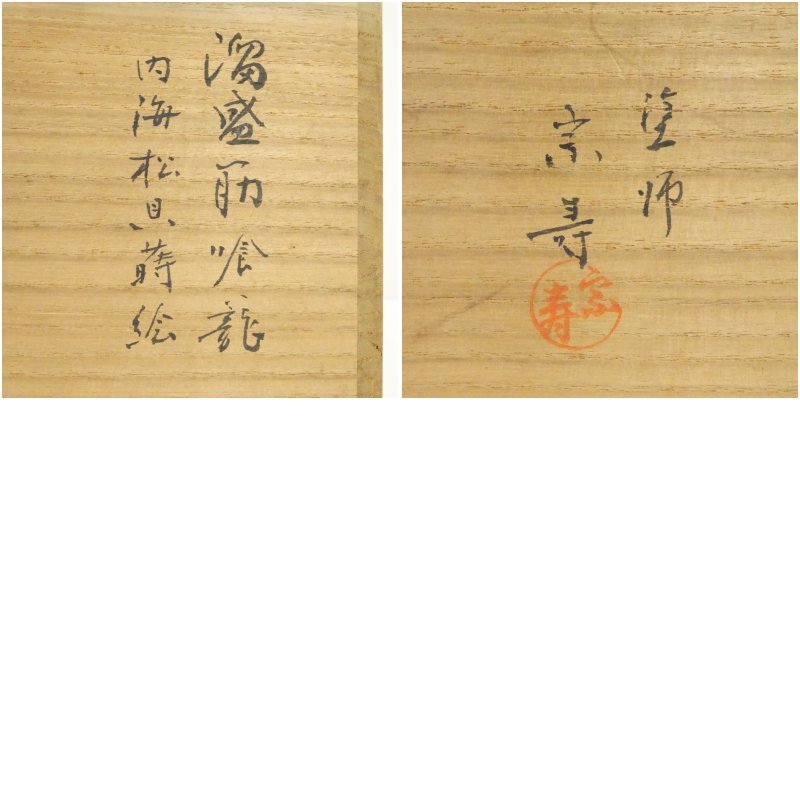 溜盛筋喰籠
内海松貝蒔絵
塗師
宗寿
宗寿